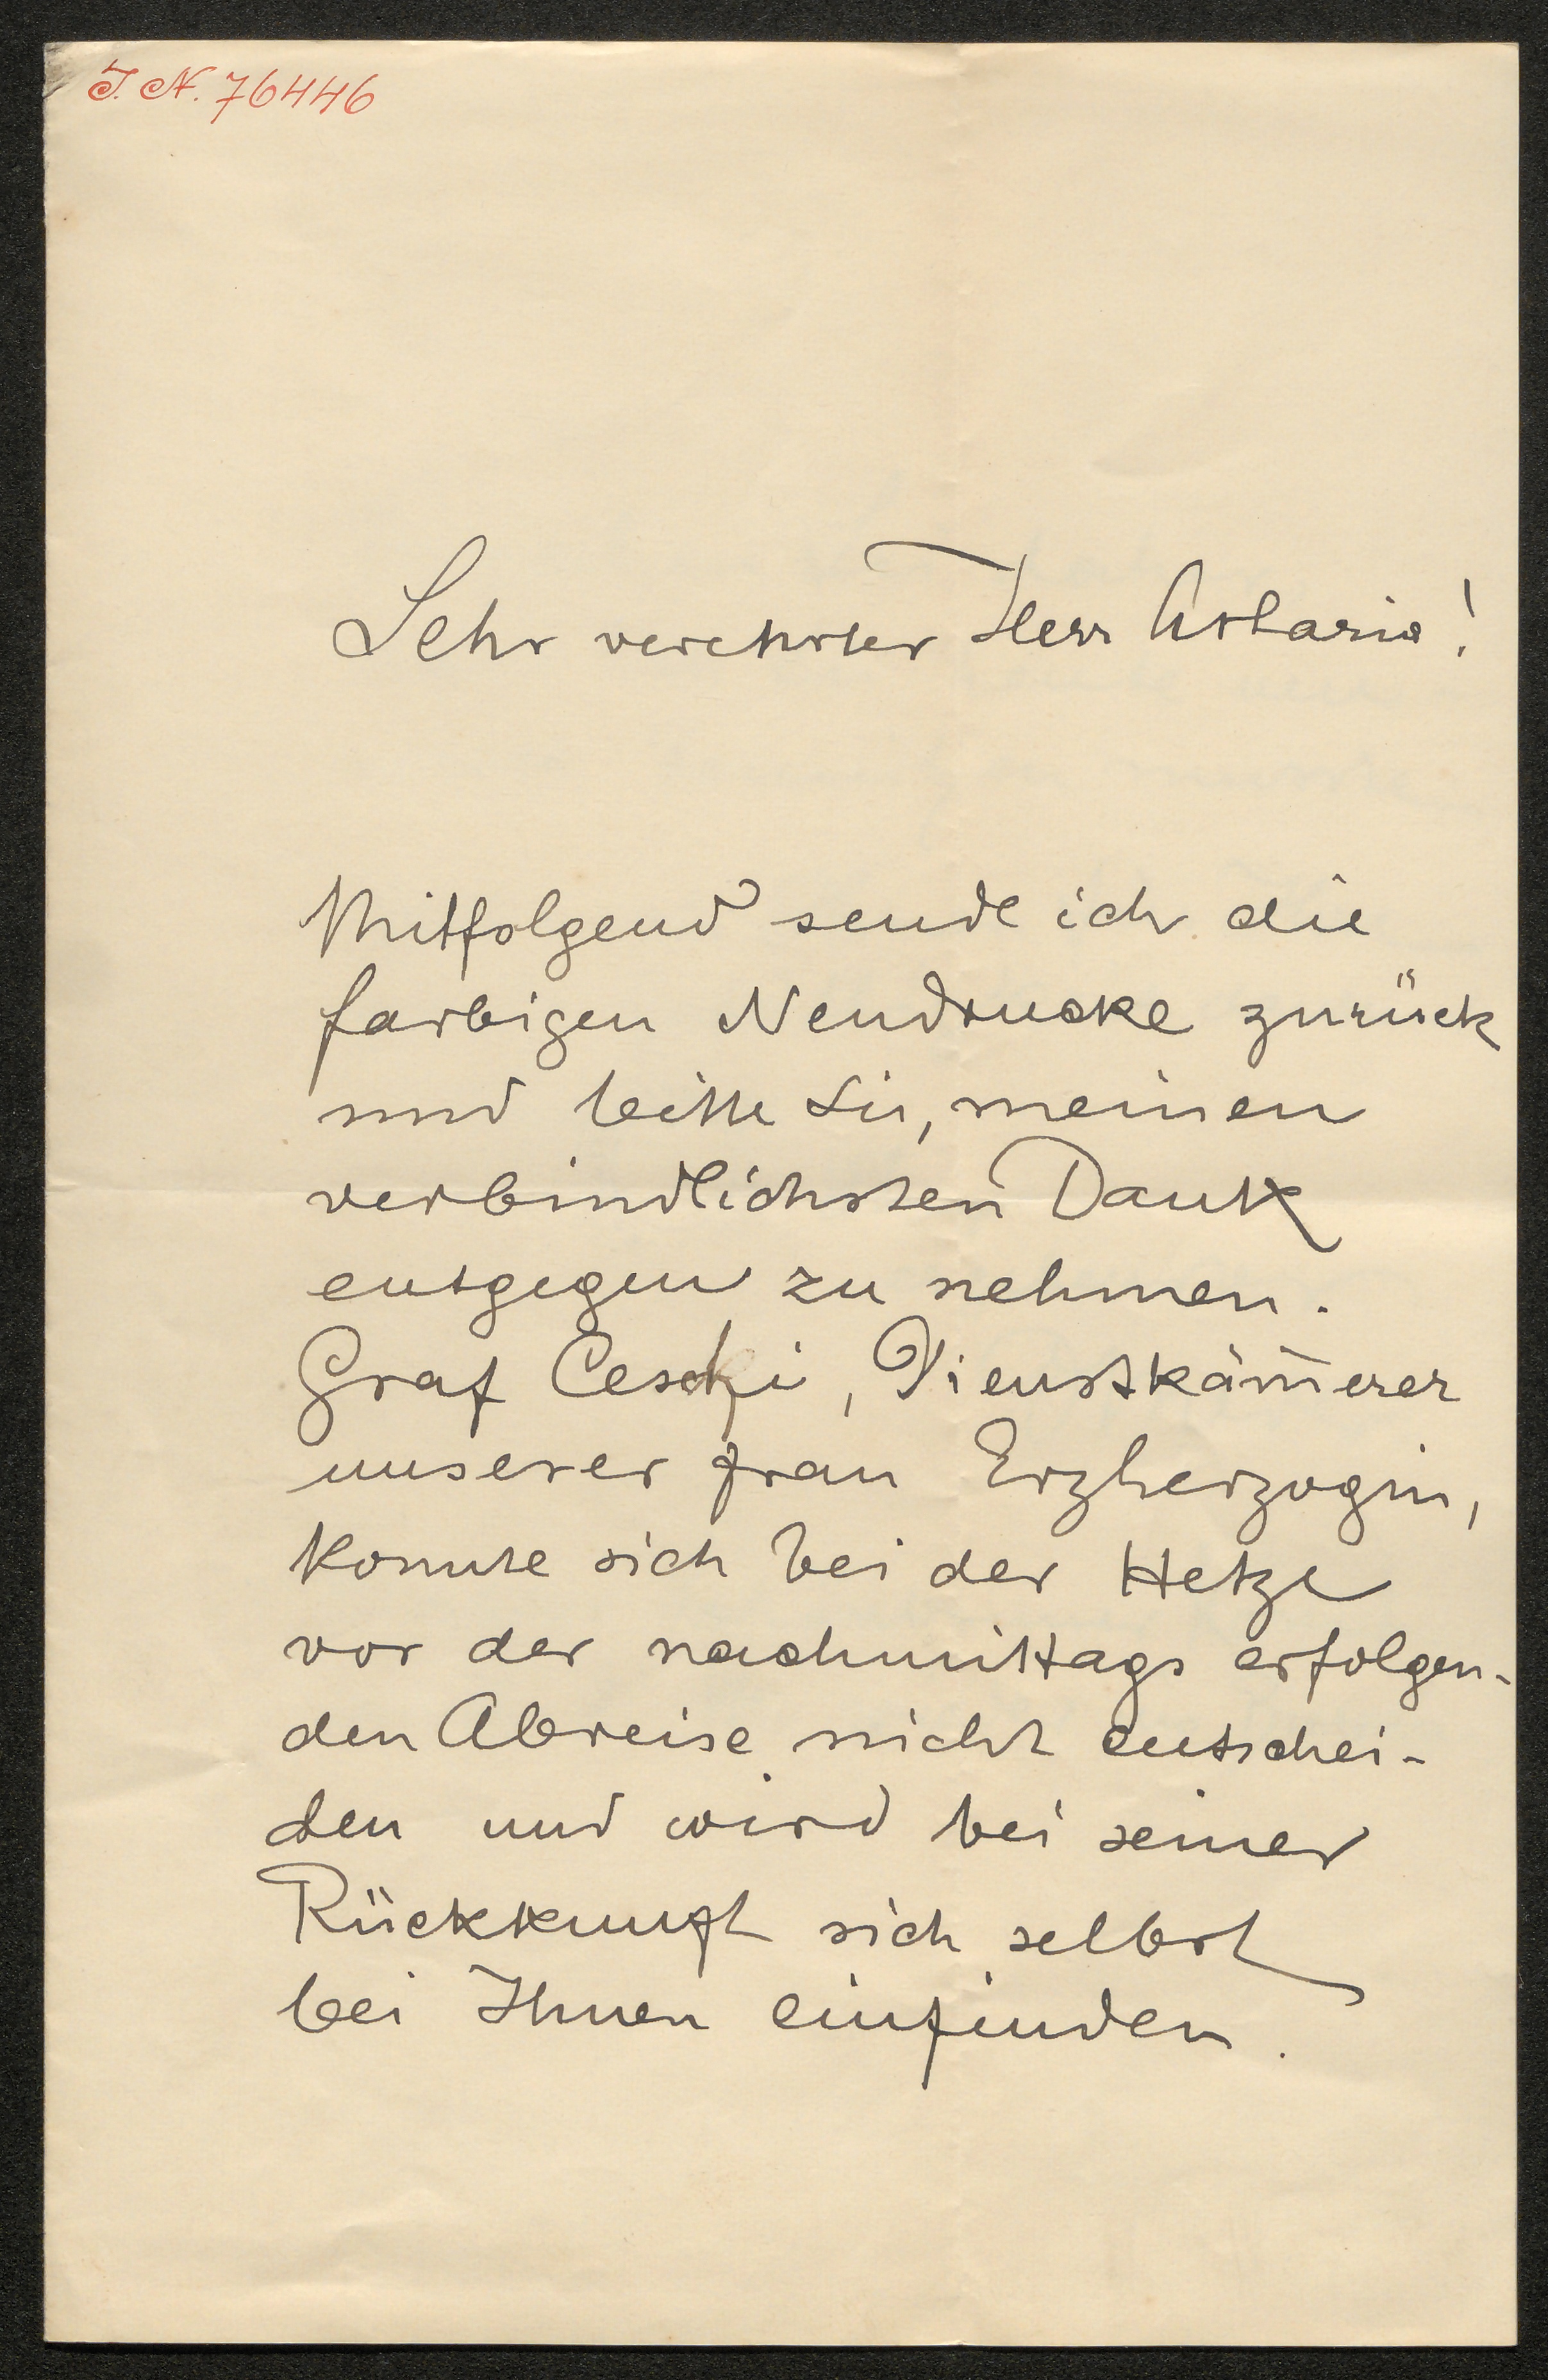 J. N. 76446
Sehr verehrter Herr Artaria!
Mitfolgend sende ich die
farbigen Neudrucke zurück
und bitte Sie, meinen
verbindlichsten Dank
entgegen zu nehmen.
Graf Ceschi, Dienstkäm̄erer
unserer Frau Erzherzogin,
konnte sich bei der Hetze
vor der nachmittags erfolgen-
den Abreise nicht entschei-
den und wird bei seiner
Rückkunft sich selbst
bei Ihnen einfinden.